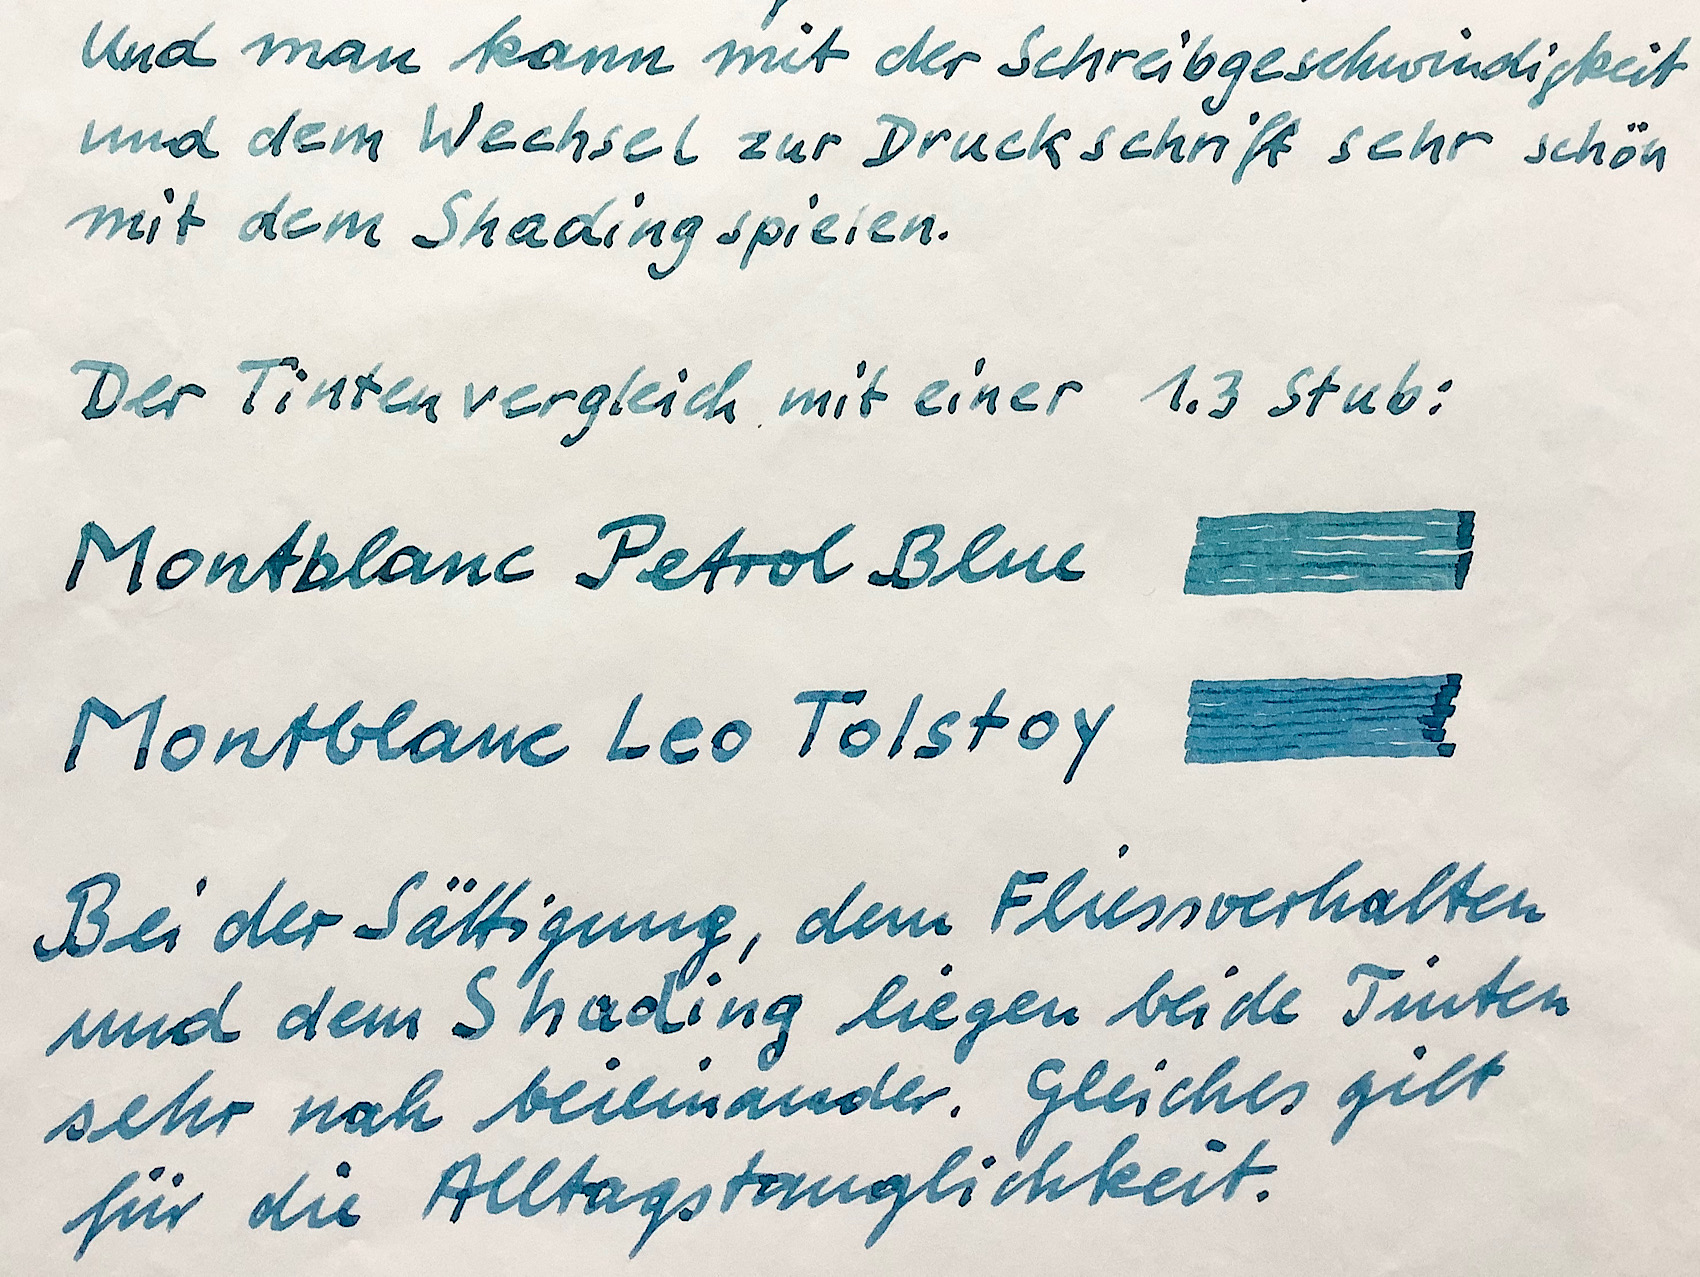 Und man kann mit der Schreibgeschwindigkeit
und dem Wechsel zur Druckschrift sehr schön
mit dem Shading spielen.
Der Tintenvergleich mit einer 1.3 Stub:
Montblanc Petrol Blue
Montblanc Leo Tolstoy
Bei der Sättigung, dem Fliessverhalten
und dem Shading liegen beide Tinten
sehr nah beieinander. Gleiches gilt
für die Alltagstauglichkeit.